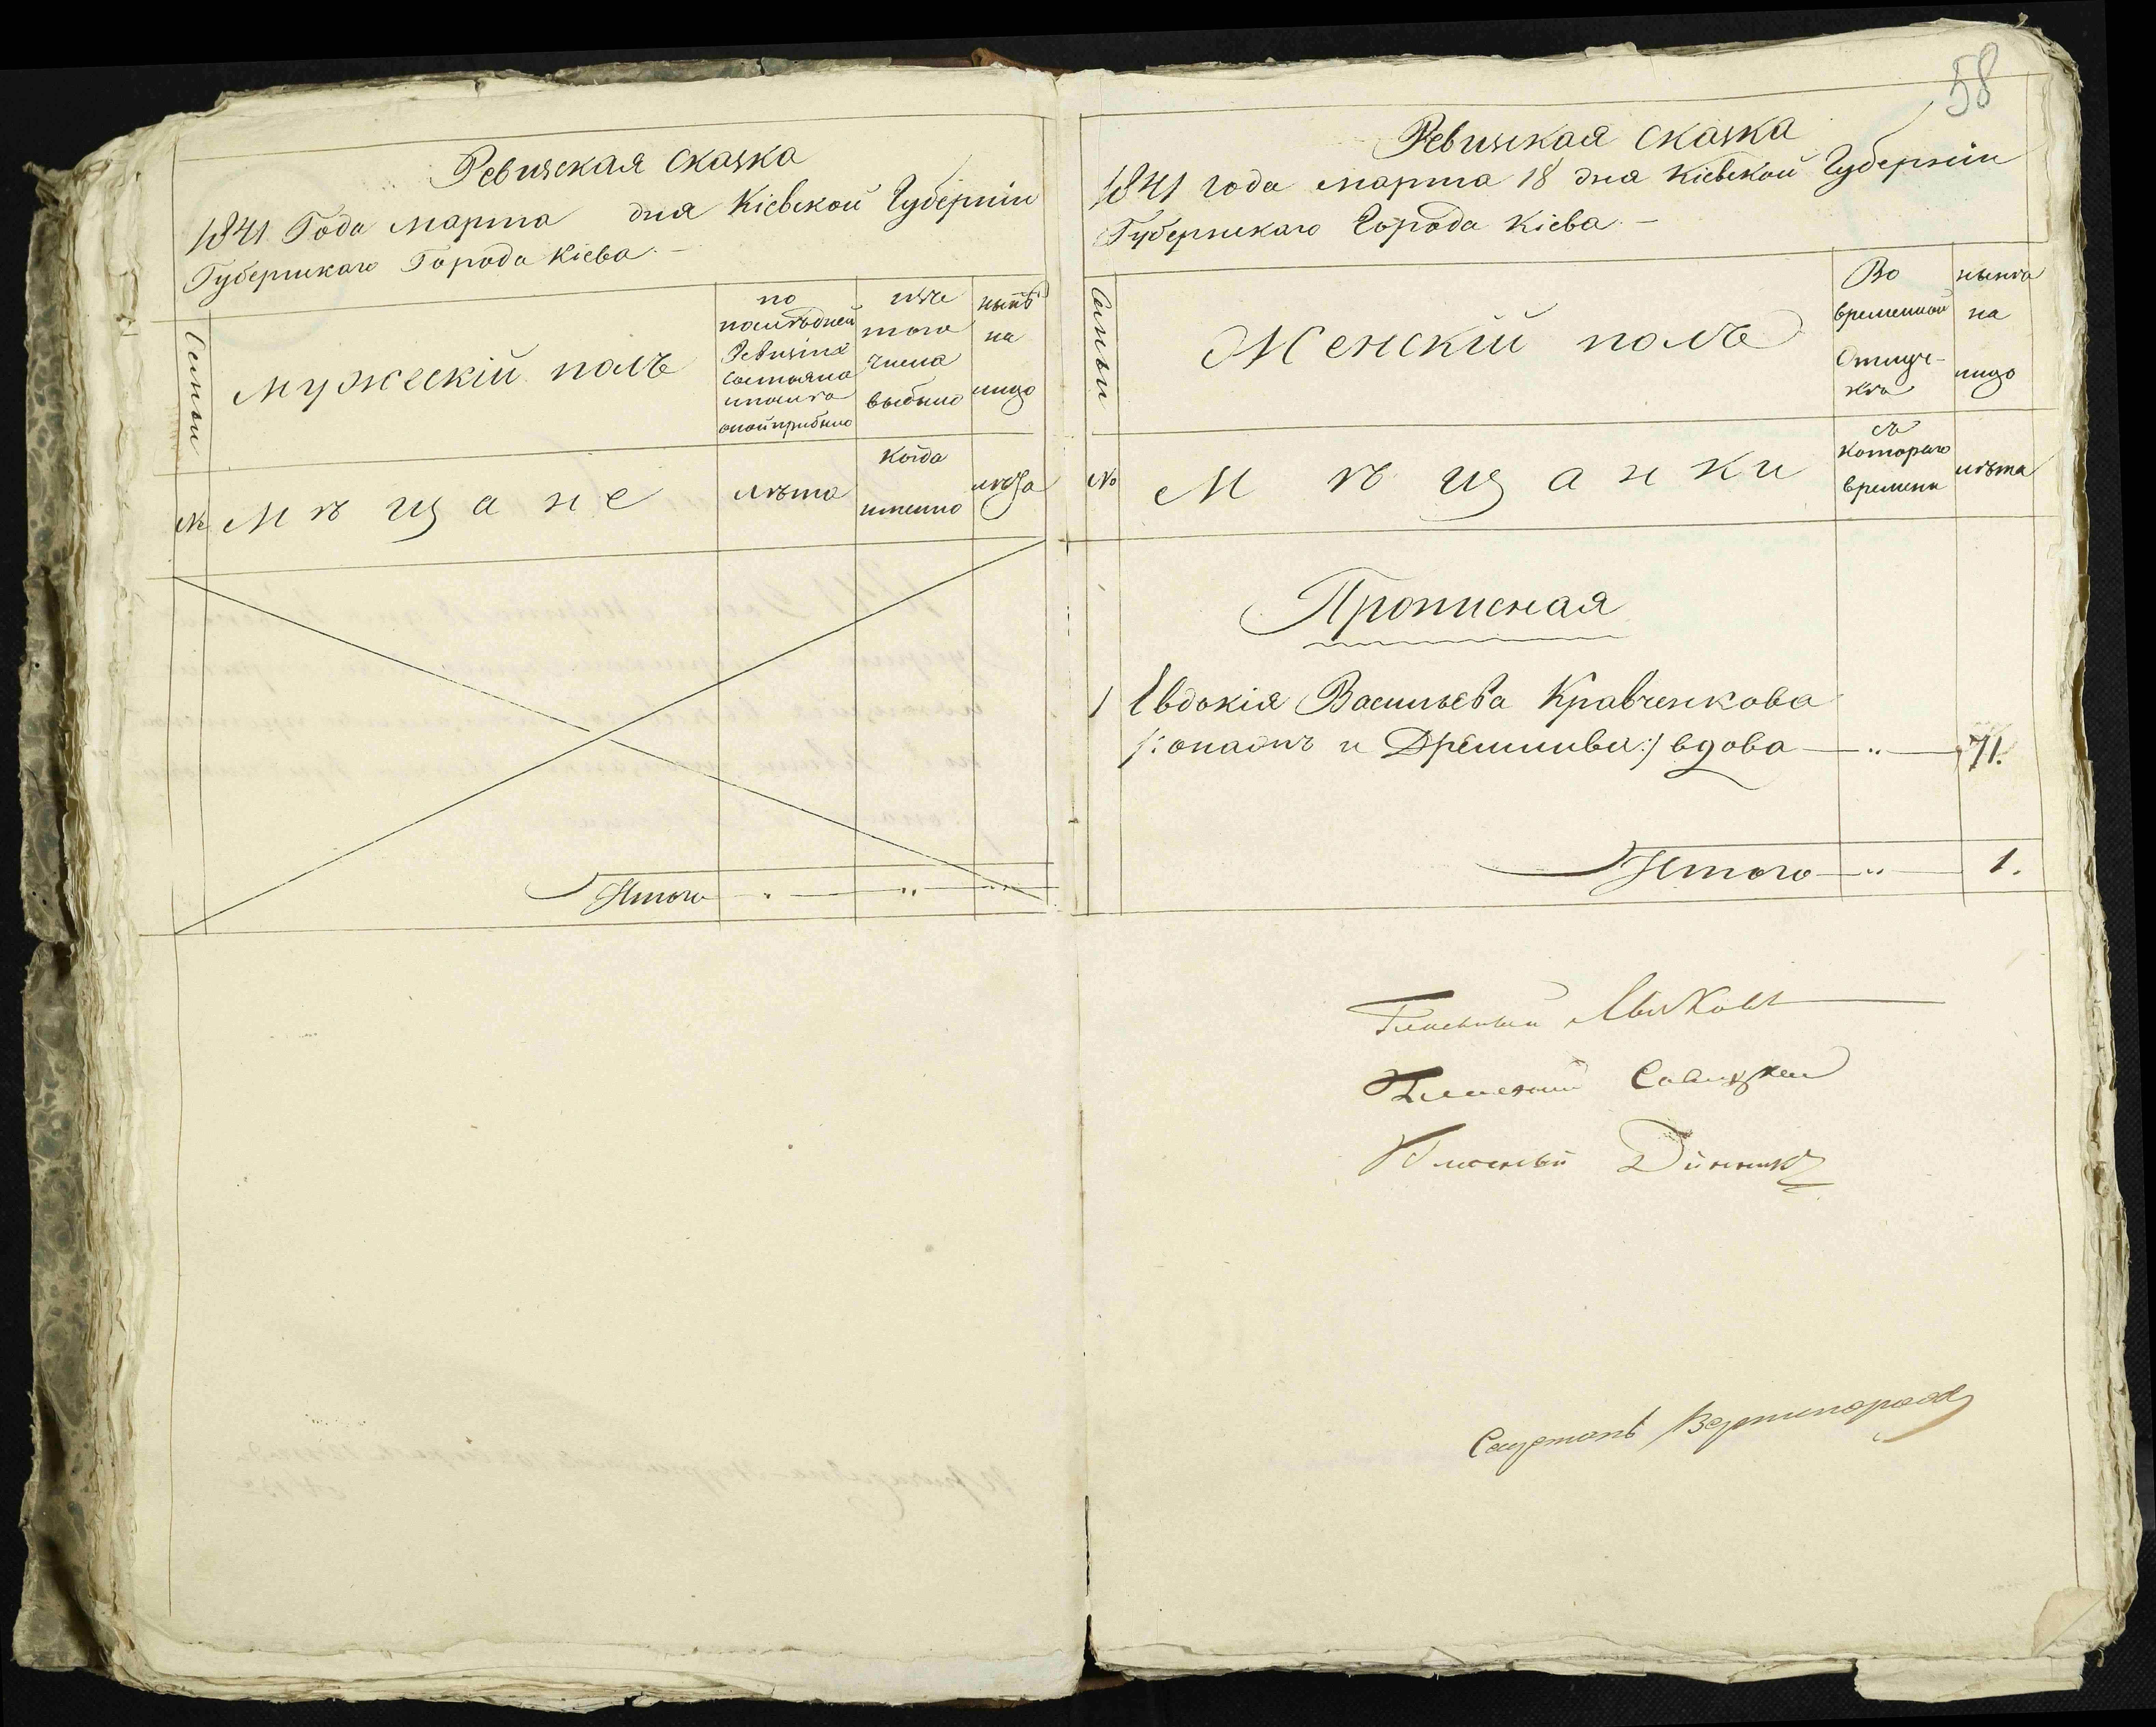 Ревизская сказка
1841 Года марта дня Кіевской Губерніи
Губернскаго Города Кіева. —
Семьи
мужескій полъ
по
последней
Ревизіи
состояло
и после
оной прибыло
изъ
того
числа
выбыло
нынѣ
на
лицо
№
Мѣщане
лѣта
когда
именно
лѣта
Итого — " — " — "
58
Ревизская сказка
1841 года марта 18 дня Кіевской Губерніи
Губернскаго Города Кіева. —
Семьи
Женскій полъ
Во
временной
отлуч-
кѣ
нынѣ
на
лицо
№
Мѣщанки
съ
котораго
времени
лѣта
Прописная
1 Евдокія Васильева Кравченкова
/: онадъ и :/ вдова — " — 71.
Итого — " — 1.
Гласный
Гласный Савицкий
Гласный Динникъ